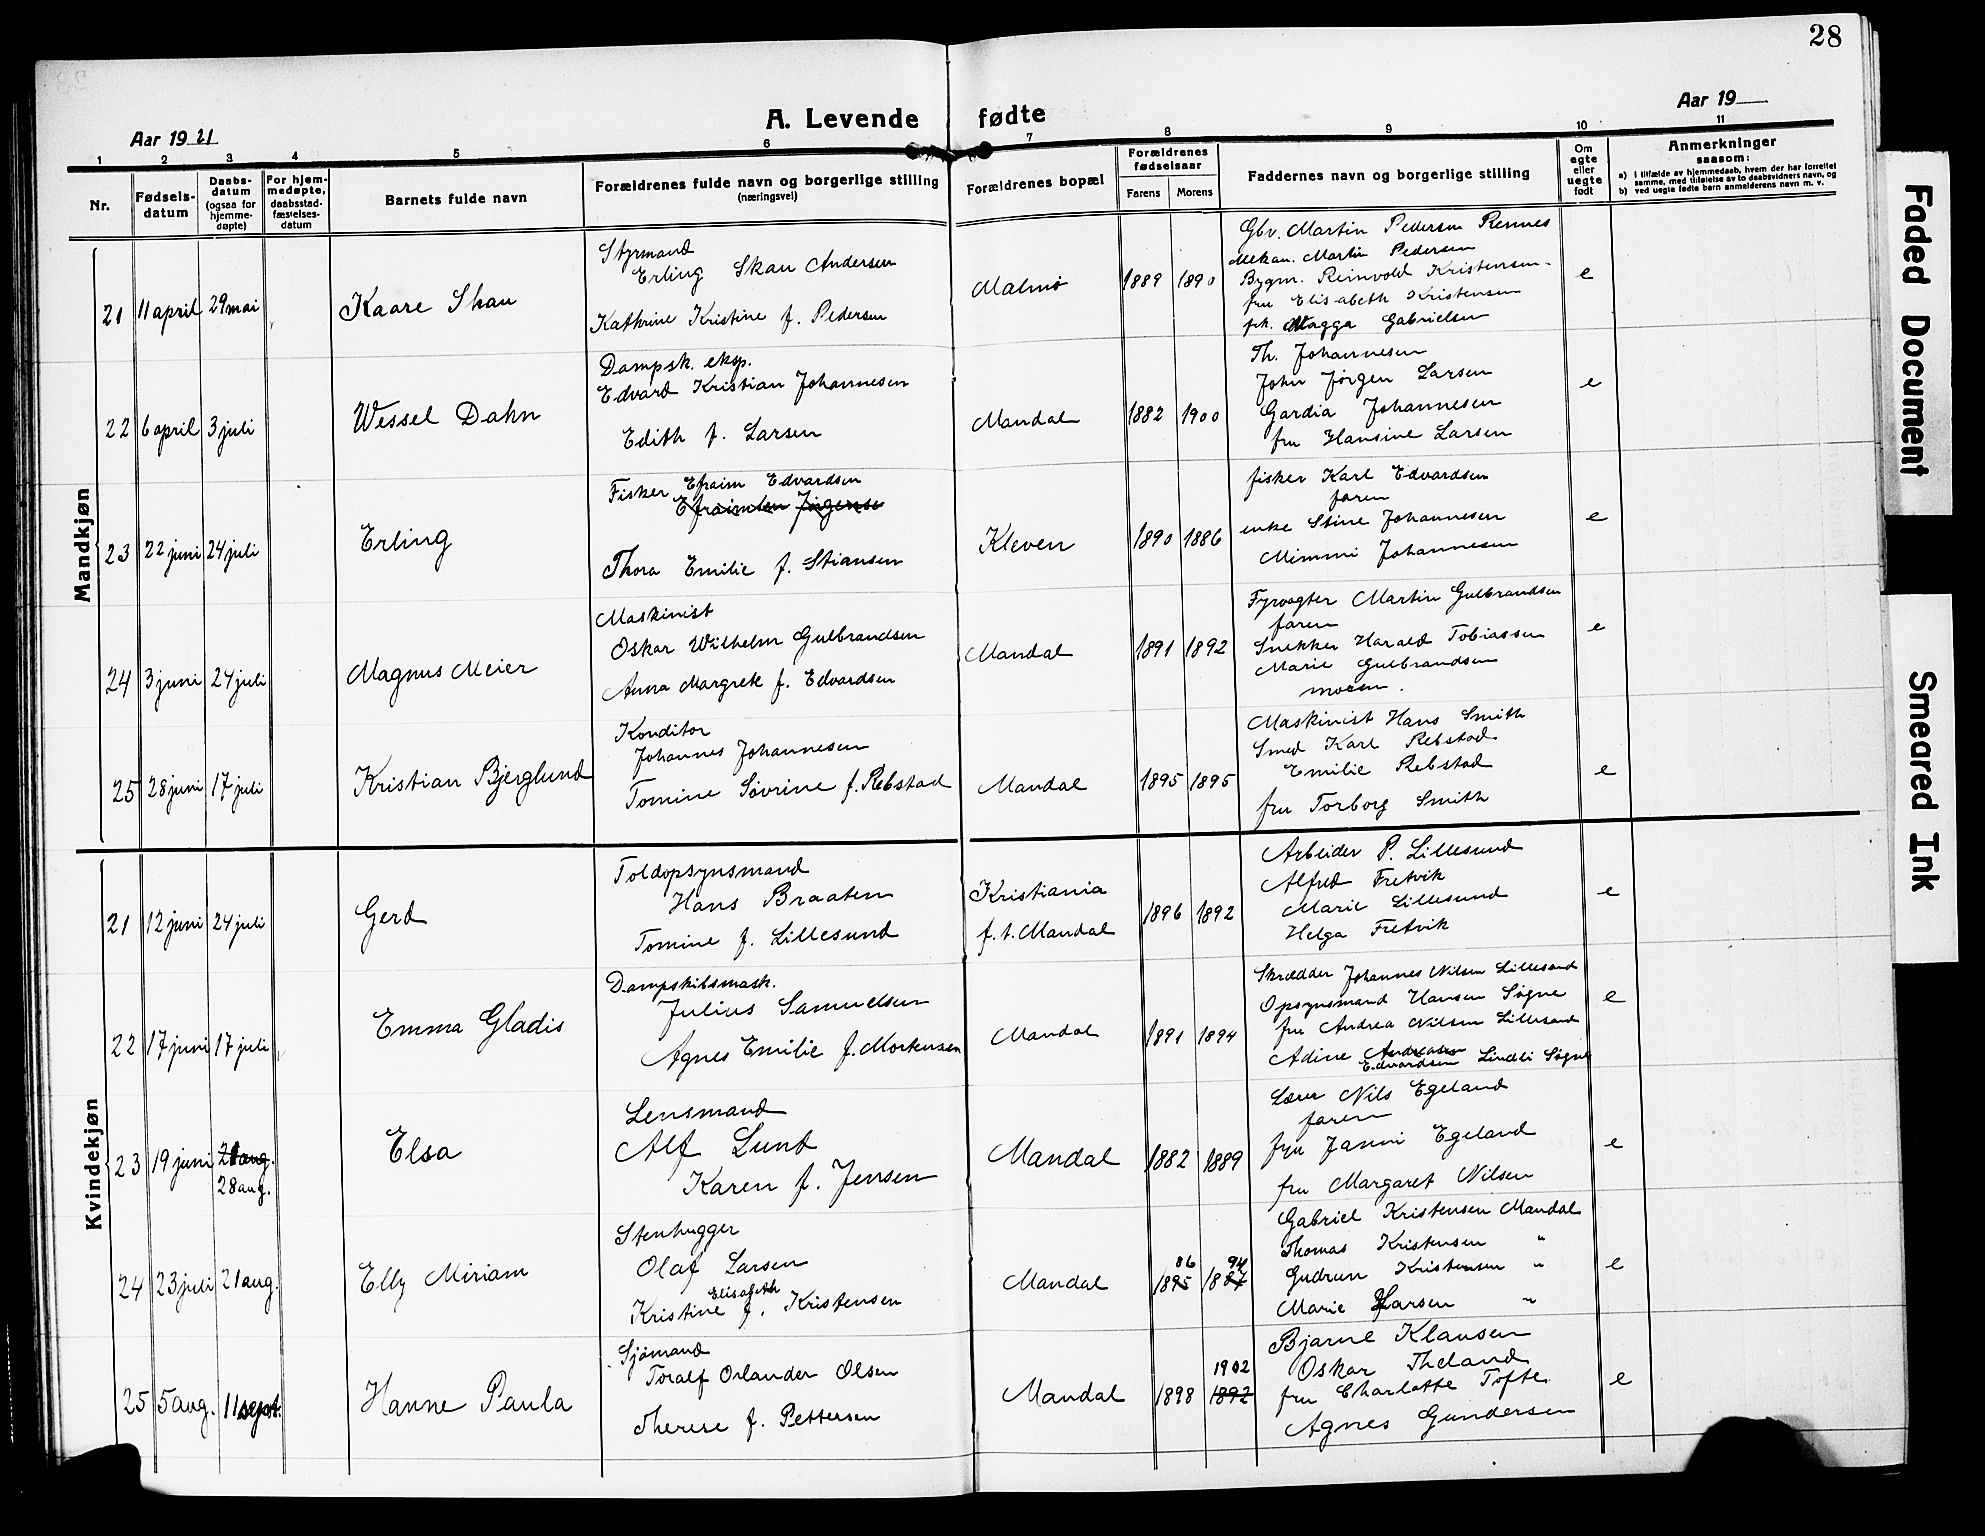 28
A. Levende fødte
Aar 1921
Aar 19
1 2 3 4 5 6 7 8 9 10 11
Nr.
Fødsels-
datum
Daabs-
datum
(ogsaa for
hjemme-
døpte)
For hjem-
medøpte,
daabsstad-
fæstelses-
datum
Barnets fulde navn
Forældrenes fulde navn og borgerlige stilling
(næringsvei)
Forældrenes bopæl
Forældrenes
fødselsaar
Farens Morens
Faddernes navn og borgerlige stilling
Om
egte
eller
uegte
født
Anmerkninger
saasom:
a) i tilfælde av hjemmedaab, hvem der har forrettet
samme, med tilføielse av to daabsvidners navn, og
b) ved uegte fødte barn anmelderens navn m. v.
Mandkjøn
21 11 april 29 mai
Kaare Skau
Styrmand
Erling Skau Andersen
Kathrine Kristine f. Pedersen
Malmø
1889 1890
Gbr. Martin Pedersen Rennes
Mekan. Martin Pedersen
Bygm. Reinvold Kristensen
fru Elisabeth Kristensen
frk. Magga Gabrielsen
e
22 6 april 3 juli
Wessel Dahn
Dampsk. eksp.
Edvard Kristian Johannesen
Edith f. Larsen
Mandal
1882 1900
Th. Johannesen
John Jørgen Larsen
Gardia Johannesen
fru Hansine Larsen
e
23 22 juni 24 juli
Erling
Fisker Efraim Edvardsen
Thora Emilie f. Stiansen
Kleven
1890 1886
fisker Karl Edvardsen
faren
enke Stine Johannesen
Mimmi Johannesen
e
24 3 juni 24 juli
Magnus Meier
Maskinist
Oskar Wilhelm Gulbrandsen
Anna Margrete f. Edvardsen
Mandal
1891 1892
Fyrvogter Martin Gulbrandsen
faren
Snekker Harald Tobiassen
Marie Gulbrandsen
moren.
e
25 28 juni 17 juli
Kristian Bjerglund
Konditor
Johannes Johannesen
Tomine Søvrine f. Rebstad
Mandal
1895 1895
Maskinist Hans Smith
Smed Karl Rebstad.
Emilie Rebstad
fru Torborg Smith
e
Kvindekjøn
21 12 juni 24 juli
Gerd
Toldopsynsmand
Hans Braaten
Tomine f. Lillesund
Kristiania
f. t. Mandal
1896 1892
Arbeider P. Lillesund
Alfred Fretvik
Marie Lillesund
Helga Fretvik
e
22 17 juni 17 juli
Emma Gladis
Dampskibsmask.
Julius Samuelsen
Agnes Emilie f. Mortensen
Mandal
1891 1894
Skrædder Johannes Nilsen Lillesand
Opsynsmand Hansen Søgne
fru Andrea Nilsen Lillesand
Adine Andreasen
Edvardsen Lindli Søgne
e
23 19 juni 21 aug.
28 aug.
Elsa
Lensmand
Alf Lund
Karen f. Jensen
Mandal
1882 1889
Lærer Nils Egeland
faren
fru Janni Egeland
fru Margaret Nilsen
e
24 23 juli 21 aug.
Elly Miriam
Stenhugger
Olaf Larsen
Elisabeth
Kristine f. Kristensen
Mandal
86 94
1895 1887
Gabriel Kristensen Mandal
Thomas Kristensen "
Gudrun Kristensen "
Marie Larsen "
e
25 5 aug. 11 sept.
Hanne Paula
Sjømand
Toralf Orlander Olsen
Therese f. Pettersen
Mandal
1902
1898 1892
Bjarne Klausen
Oskar Theland
fru Charlotte Tofte.
Agnes Gundersen
e
Faded Document
Smeared Ink